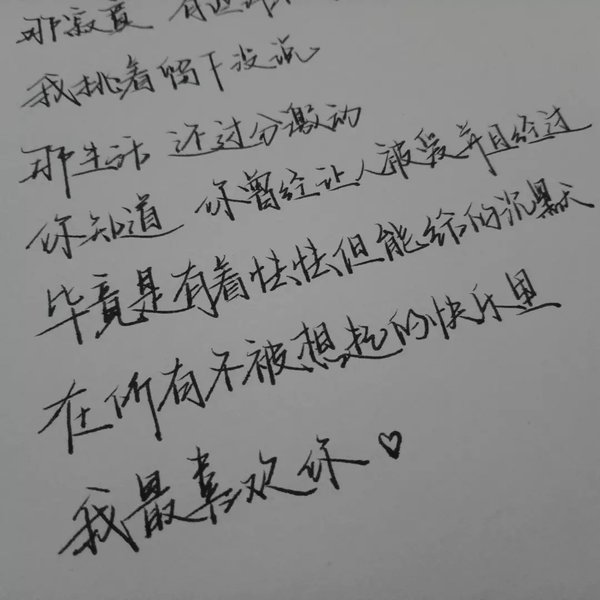 那寂寞 有些
我挑着留下没说
那生活 还过分激动
你知道 你曾经让人被爱并且经过
毕竟是有着怯怯但能给的沉默
在所有不被想起的快乐里
我最喜欢你♡